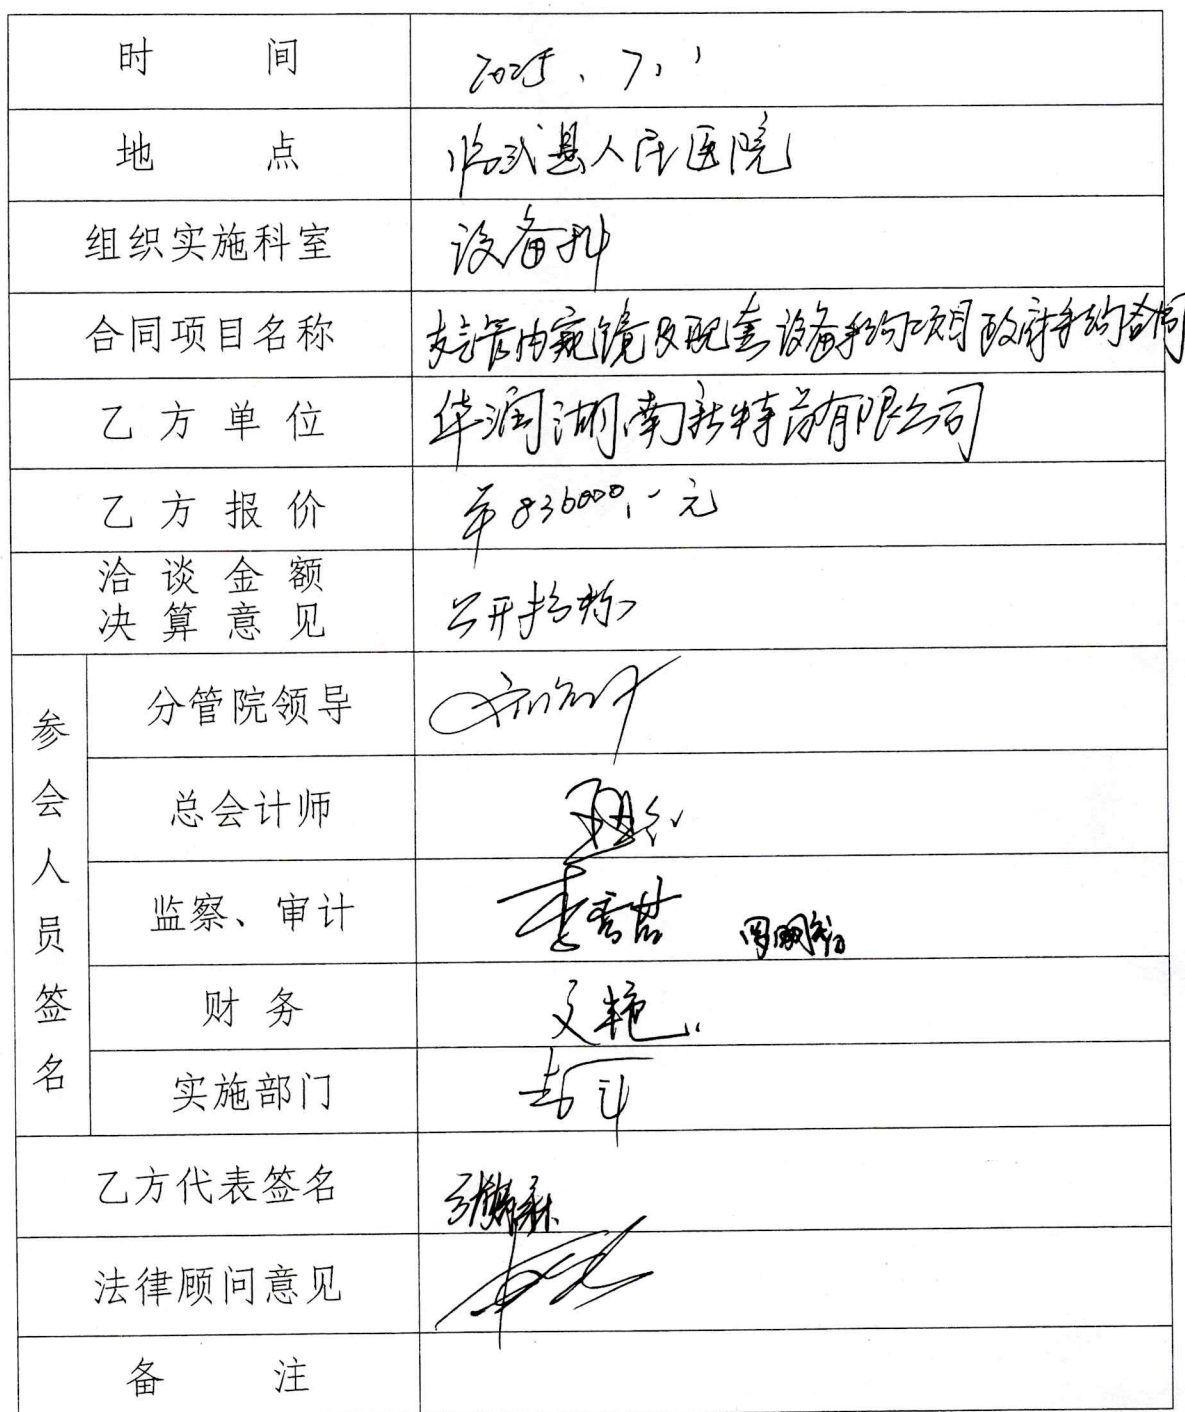 时 间 2025.7.1
地 点 临武县人民医院
组织实施科室 设备科
合同项目名称 支气管内窥镜及配套设备采购项目政府采购合同
乙方单位 华润湖南新特药有限公司
乙方报价 836000.-元
洽谈金额
决算意见 公开招标
参会人员签名
分管院领导
总会计师
监察、审计
财务 文艳
实施部门
乙方代表签名
法律顾问意见
备 注